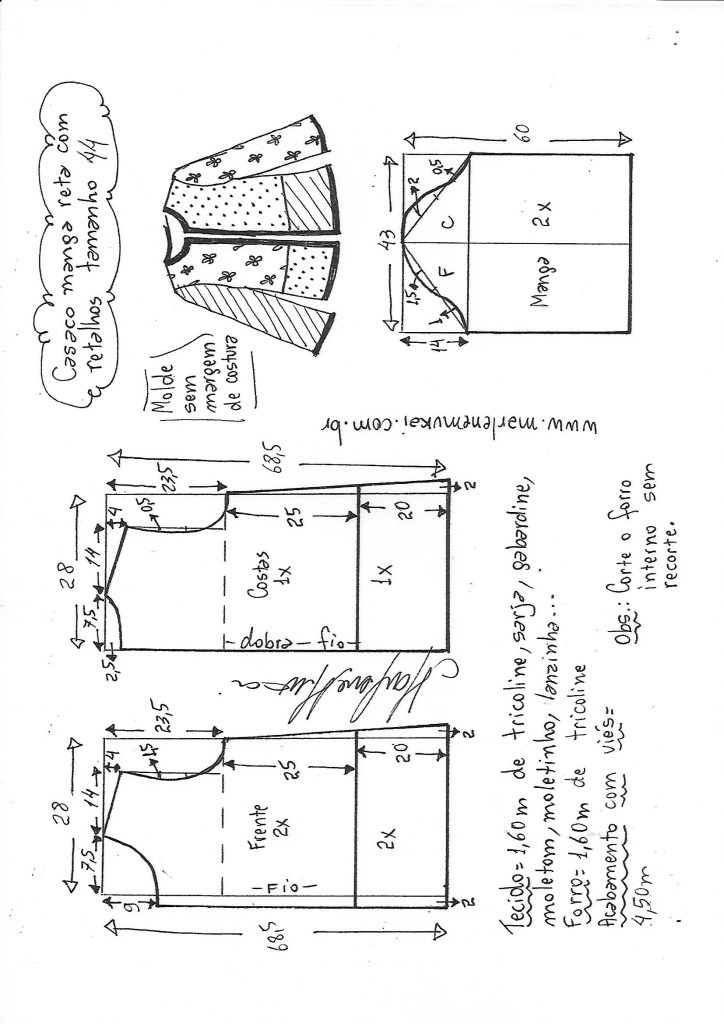 Casaco manga reta com
retalhos tamanho 44
Molde
sem
margem
de costura
43
60
14
1,5
1
2
0,5
F
C
Manga 2x
www.marlenemukai.com.br
28
7,5
14
4
2,5
0,5
23,5
68,5
Costas
1x
25
20
1x
dobra
fio
2
28
7,5
14
4
9
1,5
23,5
68,5
Frente
2x
25
20
2x
Fio
2
2
Tecido= 1,60m de tricoline, sarja, gabardine,
moletom, moletinho, lanzinha...
Forro= 1,60m de tricoline
Acabamento com viés=
4,50m
Obs.: Corte o forro
interno sem
recorte.